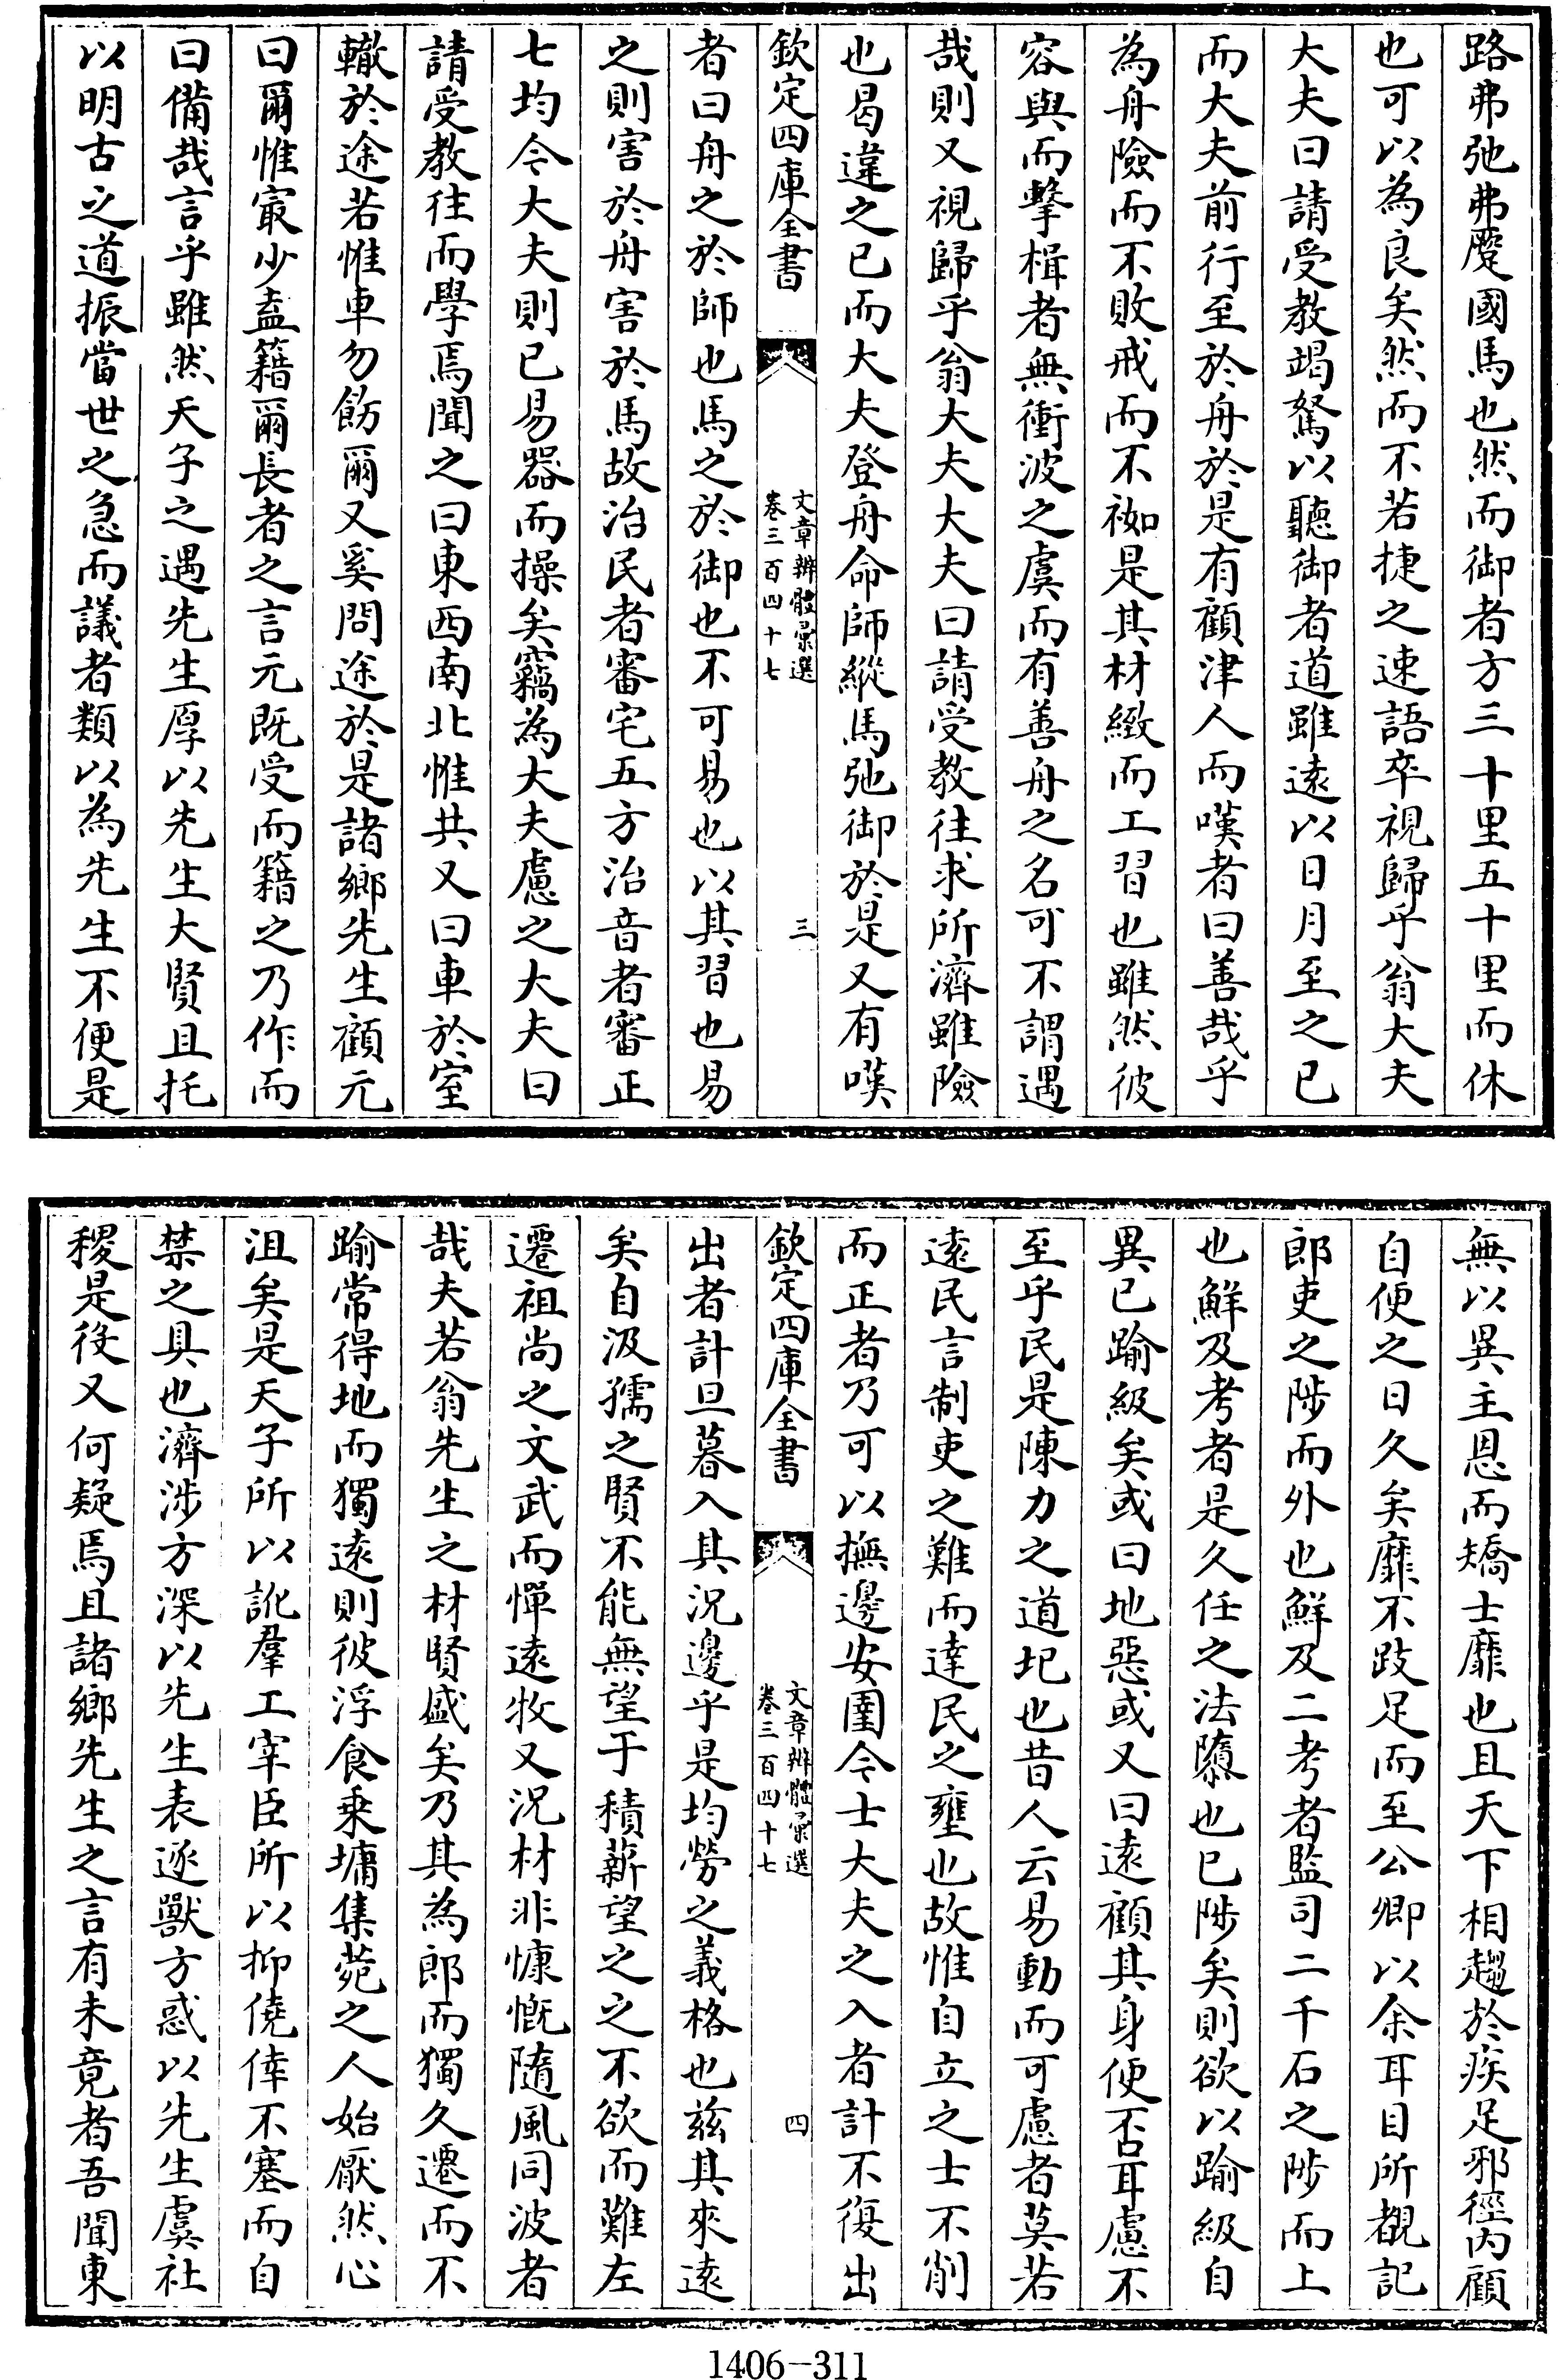 路弗弛弗蹷國馬也然而御者方三十里五十里而休
也可以為良矣然而不若捷之速語卒視歸乎翁大夫
大夫曰請受教竭駑以聽御者道雖遠以日月至之已
而大夫前行至於舟於是有顧津人而嘆者曰善哉乎
為舟險而不敗戒而不袽是其材緻而工習也雖然彼
容與而擊楫者無衝波之虞而有善舟之名可不謂遇
哉則又視歸乎翁大夫大夫曰請受教往求所濟雖險
也曷違之已而大夫登舟命師縱馬弛御於是又有嘆
欽定四庫全書
文章辨體彙選
卷三百四十七
三
者曰舟之於師也馬之於御也不可易也以其習也易
之則害於舟害於馬故治民者審宅五方治音者審正
七均今大夫則已易器而操矣竊為大夫慮之大夫曰
請受教往而學焉聞之曰東西南北惟共又曰車於室
轍於途若惟車勿飭爾又奚問途於是諸鄉先生顧元
曰爾惟㝡少盍籍爾長者之言元既受而籍之乃作而
曰備哉言乎雖然天子之遇先生厚以先生大賢且托
以明古之道振當世之急而議者類以為先生不便是
無以異主恩而矯士靡也且天下相趨於疾足邪徑內顧
自便之日久矣靡不跂足而至公卿以余耳目所覩記
郎吏之陟而外也鮮及二考者監司二千石之陟而上
也鮮及考者是久任之法隳也已陟矣則欲以踰級自
異已踰級矣或曰地惡或又曰遠顧其身便否耳慮不
至乎民是陳力之道圮也昔人云易動而可慮者莫若
遠民言制吏之難而達民之壅也故惟自立之士不削
而正者乃可以撫邊安圉今士大夫之入者計不復出
欽定四庫全書
文章辨體彙選
卷三百四十七
四
出者計旦暮入其況邊乎是均勞之義格也茲其來遠
矣自汲孺之賢不能無望于積薪望之之不欲而難左
遷祖尚之文武而憚遠牧又況材非慷慨隨風同波者
哉夫若翁先生之材賢盛矣乃其為郎而獨久遷而不
踰常得地而獨遠則彼浮食乘墉集菀之人始厭然心
沮矣是天子所以訛羣工宰臣所以抑僥倖不塞而自
禁之具也濟涉方深以先生表逐獸方惑以先生虞社
稷是役又何疑焉且諸鄉先生之言有未竟者吾聞東
1406-311